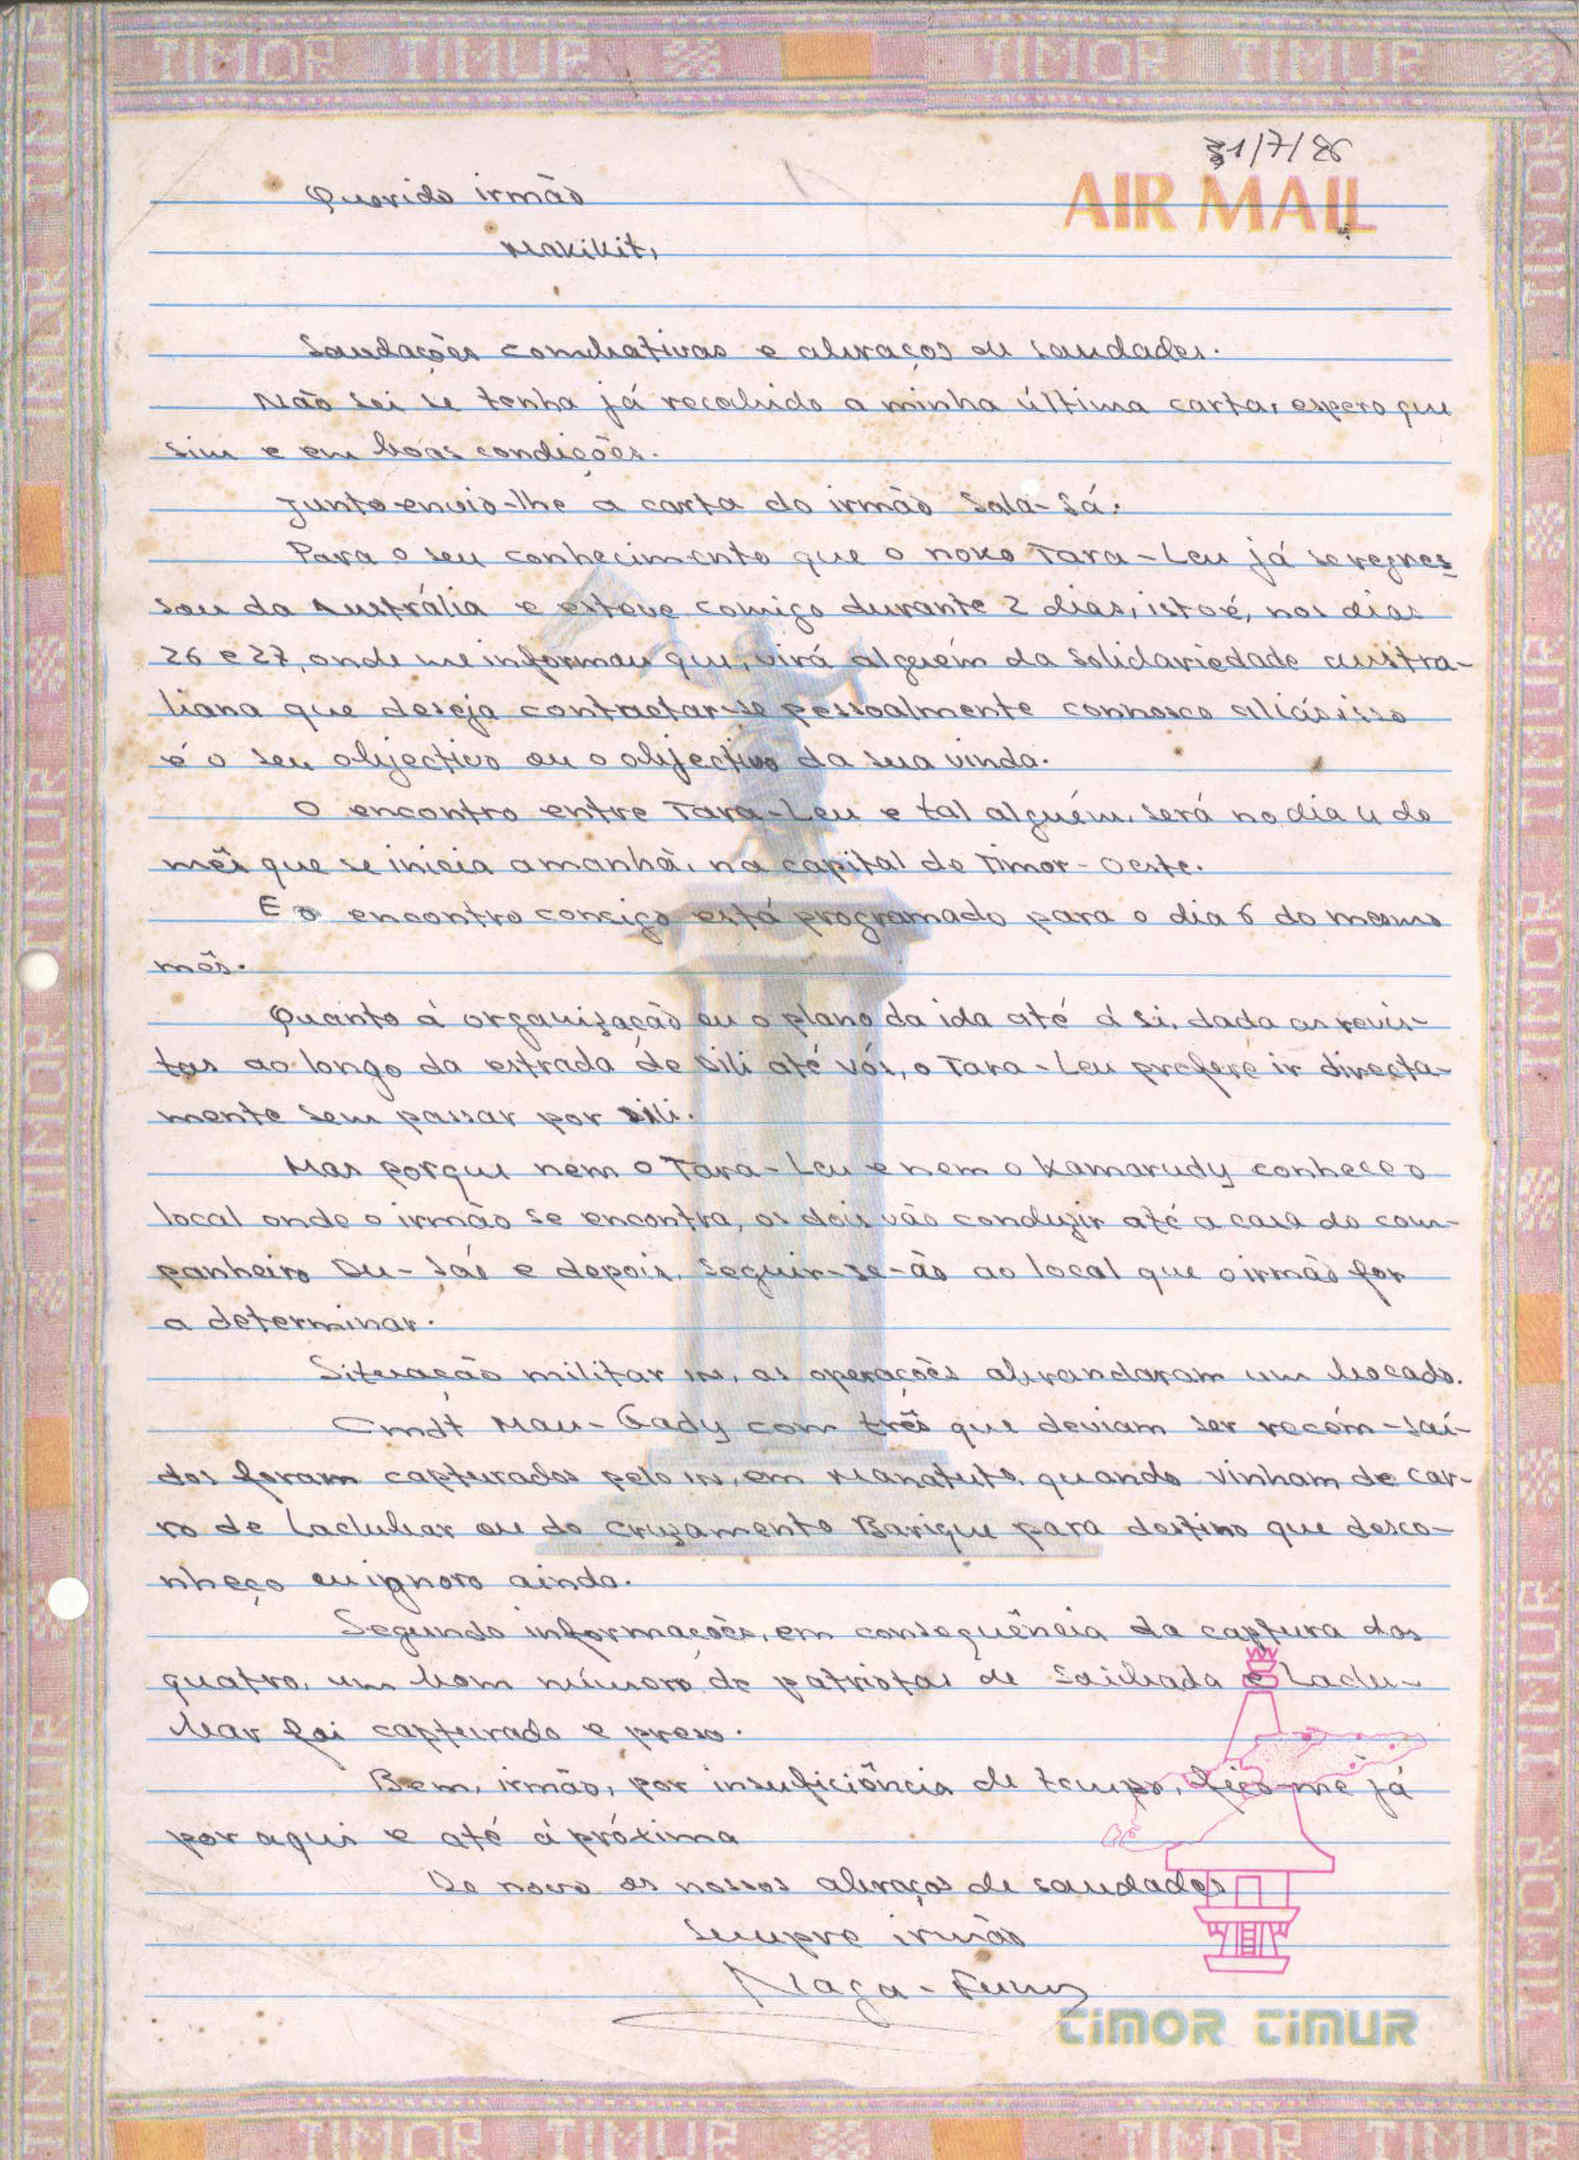 TIMOR TIMUR TIMOR TIMUR
31/7/86
AIR MAIL
Querido irmão
Makikit,
Saudações combativas e abraços de saudades.
Não sei se tenha já recebido a minha última carta, espero que
sim e em boas condições.
Junto envio-lhe a carta do irmão Sala-Sá.
Para o seu conhecimento que o noxo Tara-Leu já se regres
sou da Austrália e esteve comigo durante 2 dias, isto é, nos dias
26 e 27, onde me informou que, virá alguém da solidariedade austra-
liana que deseja contactar-se pessoalmente connosco aliás, isso
é o seu objectivo ou o objectivo da sua vinda.
O encontro entre Tara-Leu e tal alguém, será no dia 4 do
mês que se inicia amanhã, na capital de Timor-Oeste.
E o encontro consigo está programado para o dia 6 do mesmo
mês.
Quanto à organização ou o plano da ida até à si, dada as revis-
tas ao longo da estrada de Dili até vós, o Tara-Leu prefere ir directa-
mente sem passar por Dili.
Mas porque nem o Tara-Leu e nem o Kamarudy conhece o
local onde o irmão se encontra, os dois vão conduzir até a casa do com-
panheiro Du-Sáe e depois, seguir-se-ão ao local que o irmão for
a determinar.
Situação militar in, as operações abrandaram um bocado.
Cmdt Mau-Gady com três que deviam ser recém-saí-
dos foram capturados pelo in, em Manatuto, quando vinham de car-
ro de Laclubar ou do cruzamento Barique para destino que desco-
nheço ou ignoro ainda.
Segundo informações, em consequência da captura dos
quatro, um bom número de patriotas de Soibada e Laclu-
bar foi capturado e preso.
Bem, irmão, por insuficiência de tempo, fico-me já
por aqui e até à próxima
De novo os nossos abraços de saudades
Sempre irmão
TIMOR TIMUR
TIMOR TIMUR TIMOR TIMUR